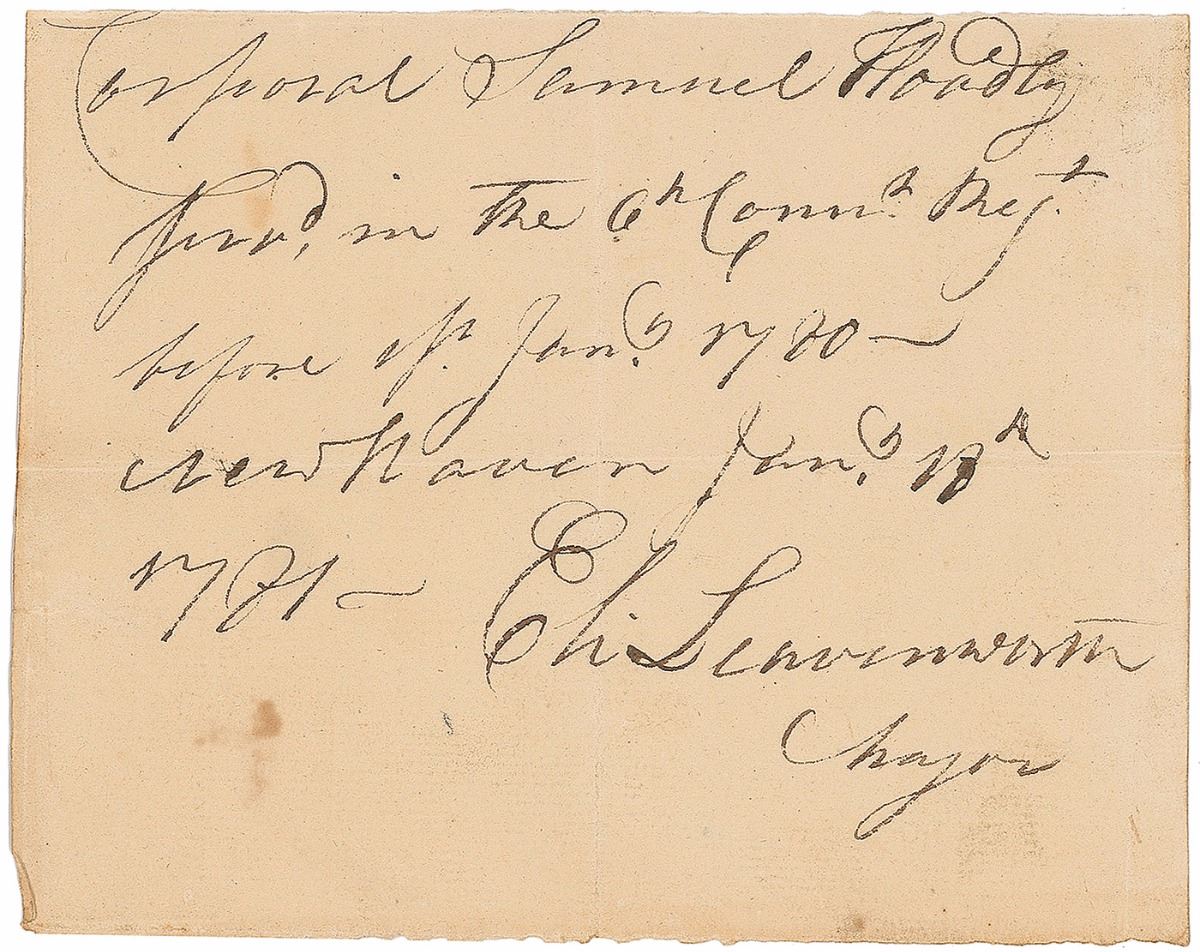 Corporal Samuel Hoadly
serv'd, in the 6th Connt. Regt.
before 1st. Jany. 1780 —
New Haven Jany.
1781 —
Eli Leavenworth
Major